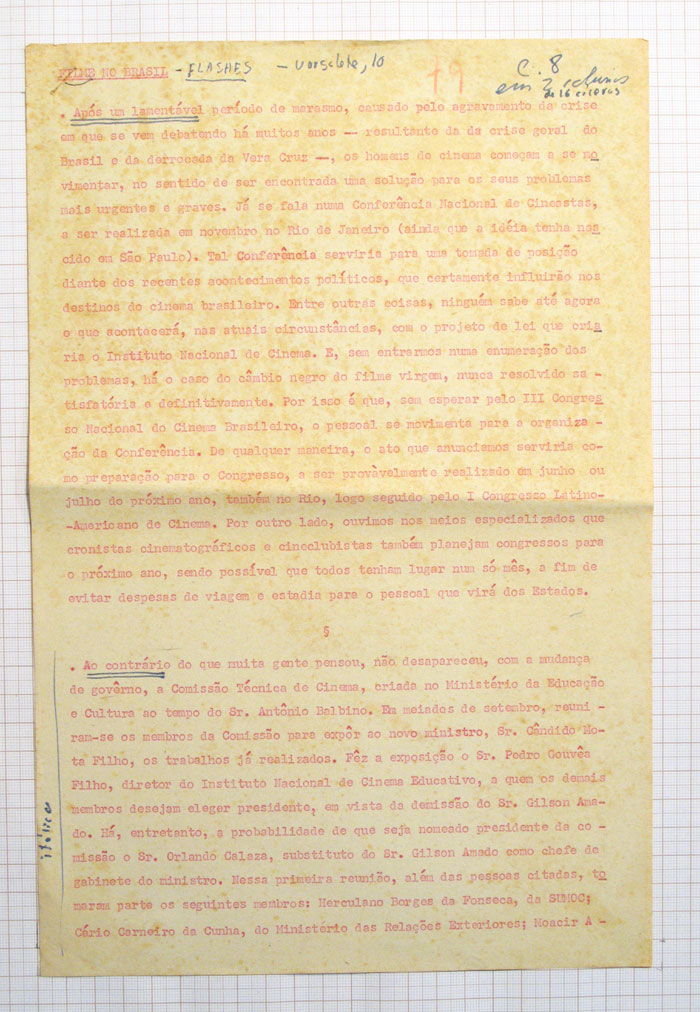 FILME NO BRASIL - FLASHES - versalete, 10
79
C. 8
em 2 colunas
de 16 cíceros
. Após um lamentável período de marasmo, causado pelo agravamento da crise
em que se vem debatendo há muitos anos — resultante da da crise geral do
Brasil e da derrocada da Vera Cruz —, os homens de cinema começam a se mo
vimentar, no sentido de ser encontrada uma solução para os seus problemas
mais urgentes e graves. Já se fala numa Conferência Nacional de Cineastas,
a ser realizada em novembro no Rio de Janeiro (ainda que a idéia tenha nas
cido em São Paulo). Tal Conferência serviria para uma tomada de posição
diante dos recentes acontecimentos políticos, que certamente influirão nos
destinos do cinema brasileiro. Entre outras coisas, ninguém sabe até agora
o que acontecerá, nas atuais circunstâncias, com o projeto de lei que cria
ria o Instituto Nacional de Cinema. E, sem entrarmos numa enumeração dos
problemas, há o caso do câmbio negro do filme virgem, nunca resolvido sa -
tisfatória e definitivamente. Por isso é que, sem esperar pelo III Congres
so Nacional do Cinema Brasileiro, o pessoal se movimenta para a organiza -
ção da Conferência. De qualquer maneira, o ato que anunciamos serviria co-
mo preparação para o Congresso, a ser provàvelmente realizado em junho ou
julho do próximo ano, também no Rio, logo seguido pelo I Congresso Latino-
-Americano de Cinema. Por outro lado, ouvimos nos meios especializados que
cronistas cinematográficos e cineclubistas também planejam congressos para
o próximo ano, sendo possível que todos tenham lugar num só mês, a fim de
evitar despesas de viagem e estadia para o pessoal que virá dos Estados.
§
. Ao contrário do que muita gente pensou, não desapareceu, com a mudança
de govêrno, a Comissão Técnica de Cinema, criada no Ministério da Educação
e Cultura ao tempo do Sr. Antônio Balbino. Em meiados de setembro, reuni -
ram-se os membros da Comissão para expôr ao novo ministro, Sr. Cândido Mo-
ta Filho, os trabalhos já realizados. Fêz a exposição o Sr. Pedro Gouvêa
Filho, diretor do Instituto Nacional de Cinema Educativo, a quem os demais
membros desejam eleger presidente, em vista da demissão do Sr. Gilson Ama-
do. Há, entretanto, a probabilidade de que seja nomeado presidente da co -
missão o Sr. Orlando Calaza, substituto do Sr. Gilson Amado como chefe de
gabinete do ministro. Nessa primeira reunião, além das pessoas citadas, to
maram parte os seguintes membros: Herculano Borges da Fonseca, da SUMOC;
Cário Carneiro da Cunha, do Ministério das Relações Exteriores; Moacir A -
itálico